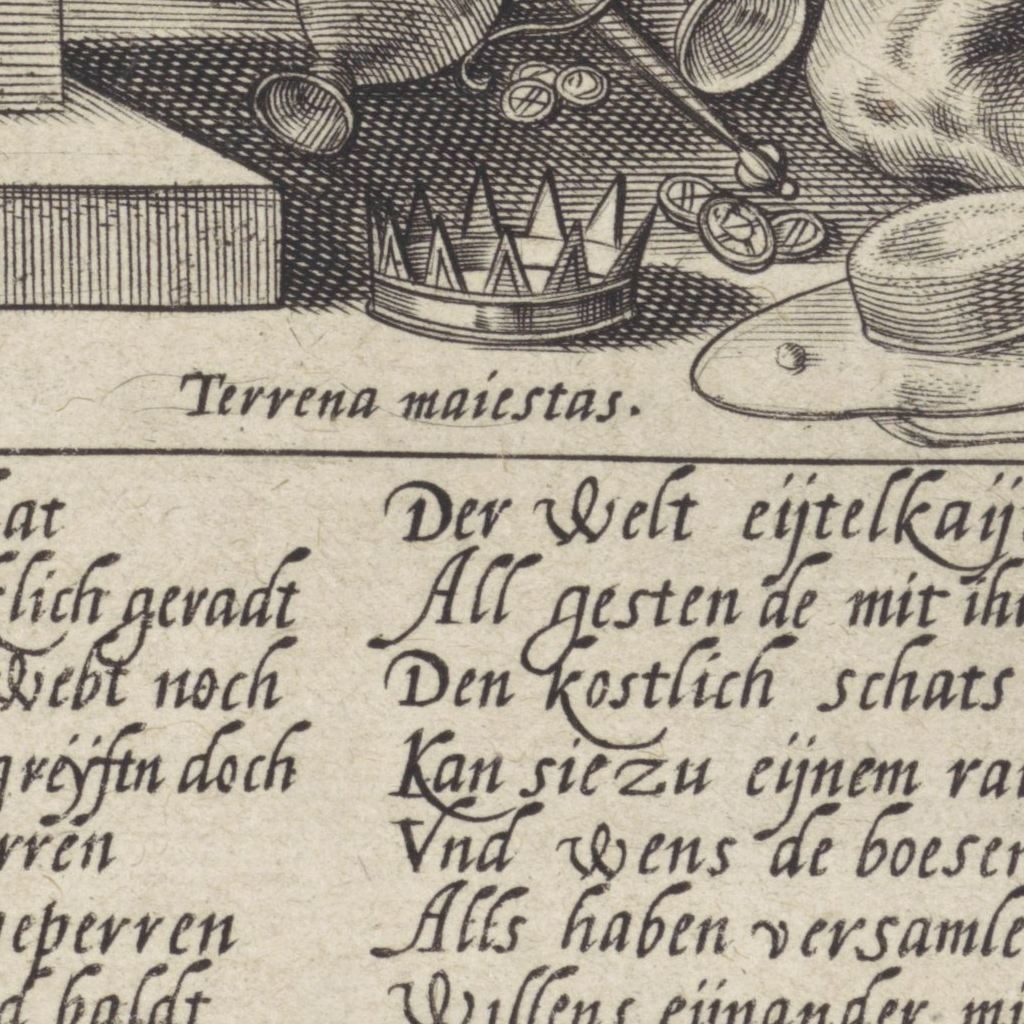 Terrena maiestas.
at
lich geradt
Webt noch
greÿftn doch
rren
geperren
d baldt
Der Welt eijtelkaij
All gesten de mit ih
Den kostlich schats
Kan sie zu eijnem ra
Vnd wens de boesen
Alls haben versamle
Willens eijnander mi